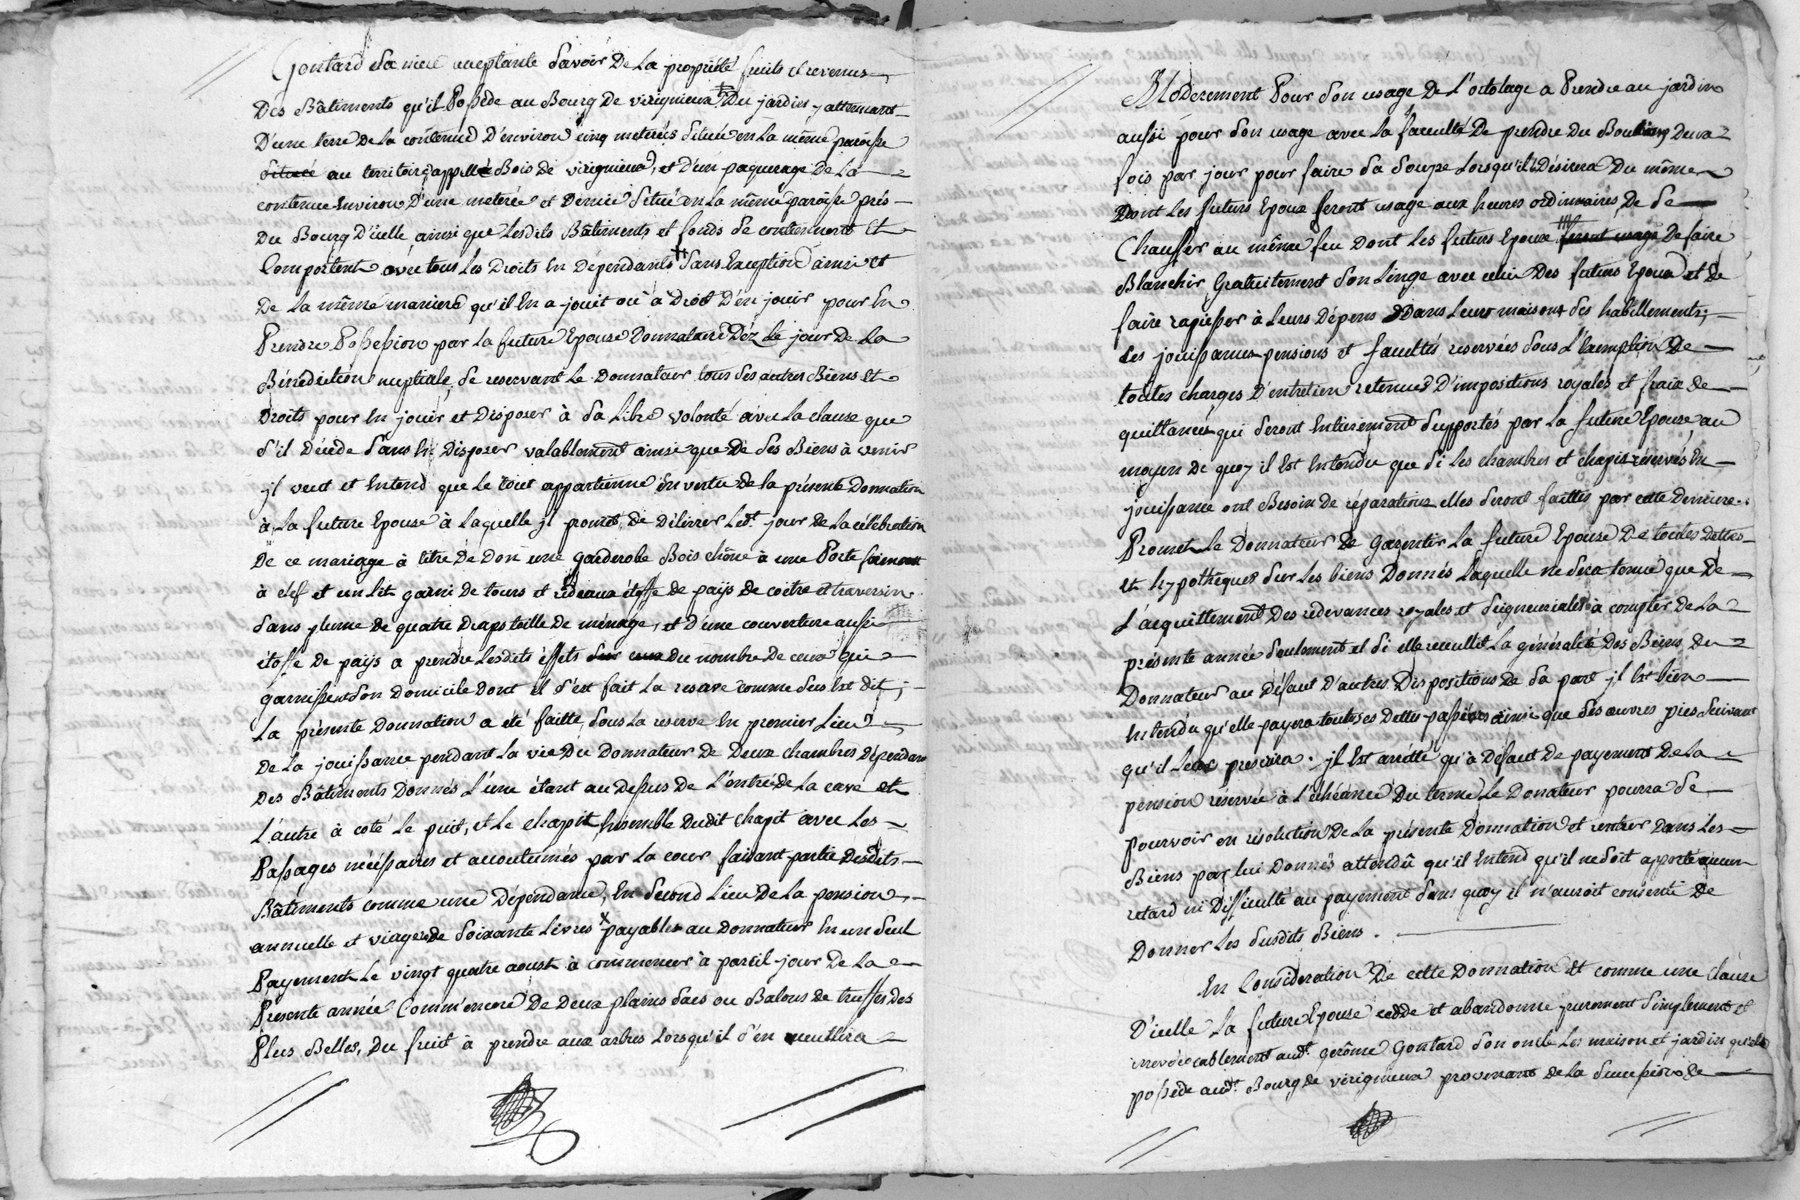 Gontard sa niece acceptante Savoir De La propriété fruits et revenus
Des Bâtiments qu'il Possède au Bourg de virignieux Du jardin y attennant
D'une terre de La contenue D'environ cinq meterées Située en La même paroisse
Situeé au territoire appellé Bois de virignieux, et D'un paquerage De La
contenue Environ D'une meterée et Demie Situé en La même paroisse prés
Du Bourg D'icelle ainsi que Lesdits Bâtiments et fonds se contiennent Et
Comportent avec tous Les Droits En Dépendants Sans Exception ainsi et
De La même maniere qu'il En a jouit ou a Droit D'en jouir pour En
Prendre Possession par La future Epouse Donnataire Dèz Le jour De La
Bénédiction nuptiale, se reservant Le Donnateur tous ses autres Biens Et
Droits pour En jouir et Disposer à Sa Libre volonté avec La clause que
s'il décede Sans En Disposer valablement ainsi que De Ses Biens à venir
jl veut et Entend que Le tout appartienne En vertu de la présente Donnation
à La future Epouse à Laquelle jl promet, de Délivrer Ledt. jour de La célébration
De ce mariage à titre De Don une garderobe Bois chêne à une Porte fermant
à clef et un Lit garni de tours et rideaux étoffe de païs de coëtre et traversin
Sans plume de quatre Draps toille De ménage, et D'une couverture aussi
étoffe De païs a prendre Lesdits éffets Sur ceux Du nombre De ceux qui
garnissent Son Domicile Dont il S'est fait La reserve comme Sus Est dit;
La présente Donnation a été faitte, Sous La reserve En premier Lieu
De La jouissance pendant La vie Du Donnateur De Deux chambres Dépendant
Des Bâtiments Donnés L'une étant au Dessus De L'entrée De La cave et
L'autre à coté Le puit, et Le chapit, Ensemble Dudit Chapit avec Les
Passages nécéssaires et accoutumés par La cour faisant partie Desdits
Bâtiments comme une Dépendance, En Second Lieu De La pension
annuelle et viagere De Soixante Livres payables au Donnateur En un Seul
Payement Le vingt quatre aoust à commencer à pareil jour De La
Présente année Comm'encore De Deux plains Sacs ou Balons de truffes des
Plus Belles, Du fruit à prendre aux arbres Lorsqu'il S'en cueuillira
Moderement Pour Son usage De L'ortolage a Prendre au jardin
aussi pour Son usage avec La faculté De prendre Du Bouillon, Deux
fois par jour pour faire Sa Soupe Lorsqu'il le Désirera Du même
Dont Les futurs Epoux feront usage aux heures ordinnaires, De Se
Chauffer au même feu Dont Les futurs Epoux feront usage De faire
Blanchir Gratuitement Son Linge avec celui Des futurs Epoux et de
faire rapiesser à Leurs Dépens Dans Leurs maisons Ses habillements;
Les jouissances pensions et facultés reservées Sous L'Exemption De
toutes charges D'entretien retenues D'impositions royales et fraix de
quittances qui Seront Entierement Supportés par La future Epouse au
moyen de quoy il Est Entendu que Si Les chambres et chapit réservés En
jouissance ont Besoin de réparations elles Seront faittes par cette Derniere.
Promet Le Donnateur De Garentir La future Epouse De toutes Dettes
et hypotheques Sur Les biens Donnés Laquelle ne Sera tenue que De
L'acquittement Des redevances royales et Seigneuriales à compter De La
présente année Seulement et Si elle recueillit La généralité Des Biens Du
Donnateur au Défaut D'autres Dispositions De Sa part jl Est bien
Entendu qu'elle payera toutes ses Dettes passives ainsi que Ses œuvres pies Suivant
qu'il Les prescrira. jl Est arrétté qu'à Défaut De payement De La
pension réservée à L'échéance Du terme Le Donateur pourra Se
pourvoir en résolution De La présente Donnation et rentrer Dans Les
Biens par Lui Donnés attendû qu'il Entend qu'il ne Soit apporté aucun
retard ni Difficulté au payement Sans quoy il n'auroit consenti De
Donner Les Susdits Biens.
En Considération De cette Donnation Et comme une clause
D'icelle La future Epouse cedde et abandonne purement Simplement et
irrevocablement audt. gerôme Gontard Son oncle Les maison et jardin qu'elle
possède audt. Bourg de virignieux provenant de La Succession De